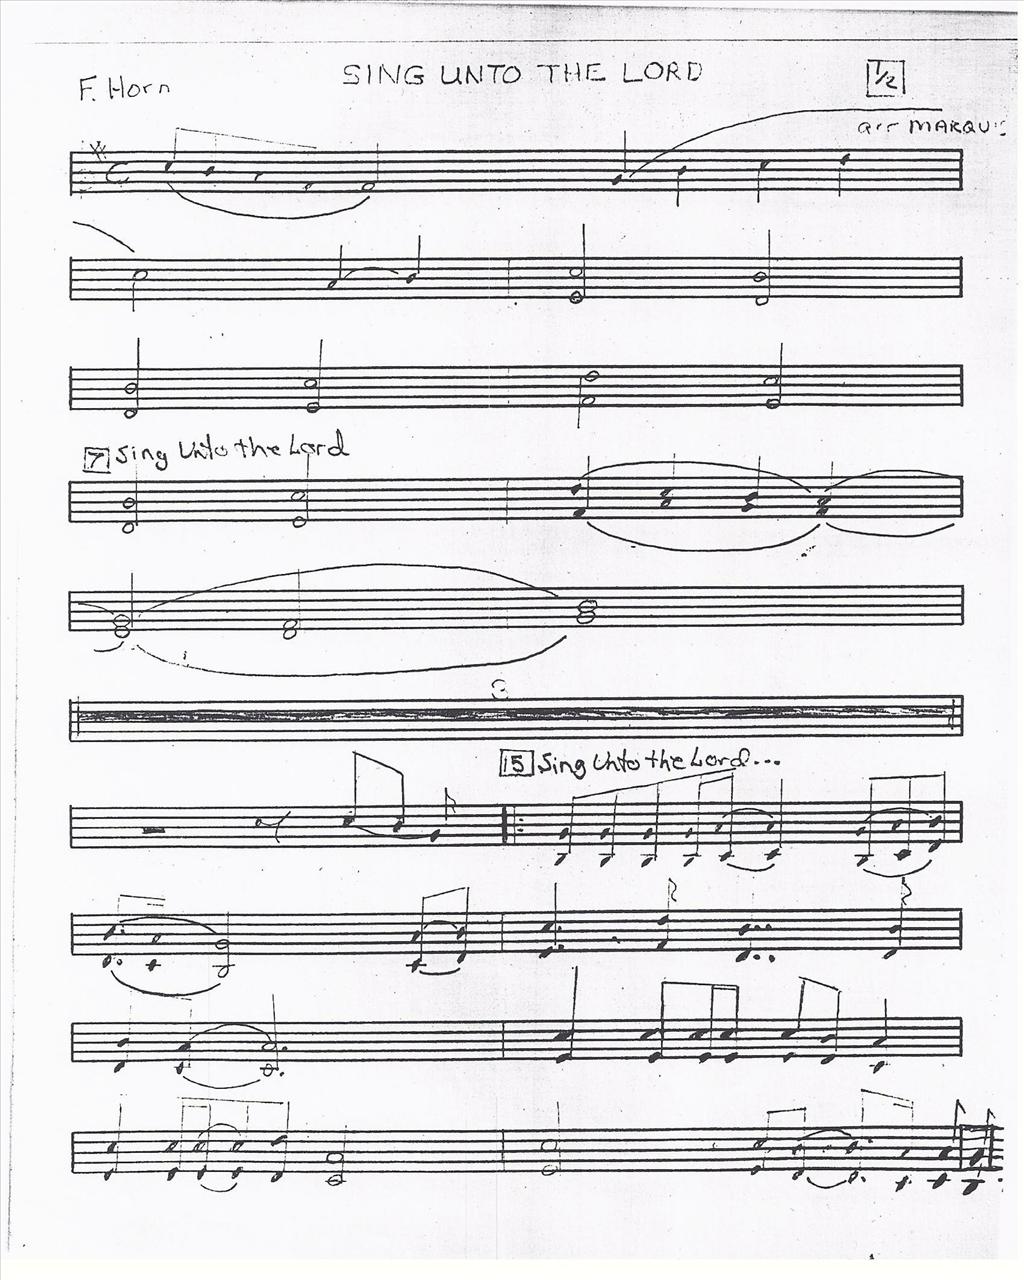 F. Horn
SING UNTO THE LORD
1/2
arr MARQUIS
7 Sing Unto the Lord
3
15 Sing Unto the Lord...